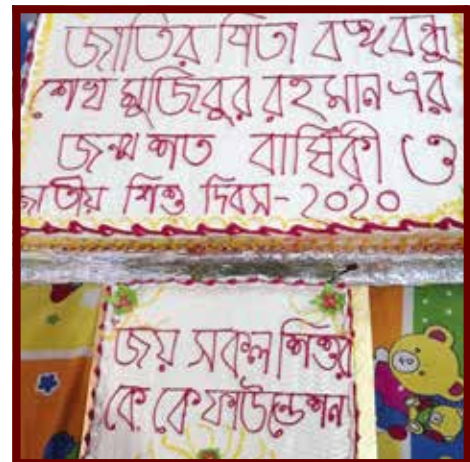 জাতির পিতা বঙ্গবন্ধু
শেখ মুজিবুর রহমান এর
জন্ম শত বার্ষিকী ও
জাতীয় শিশু দিবস- ২০২০
জয় সকল শিশুর
কে কে ফাউন্ডেশন